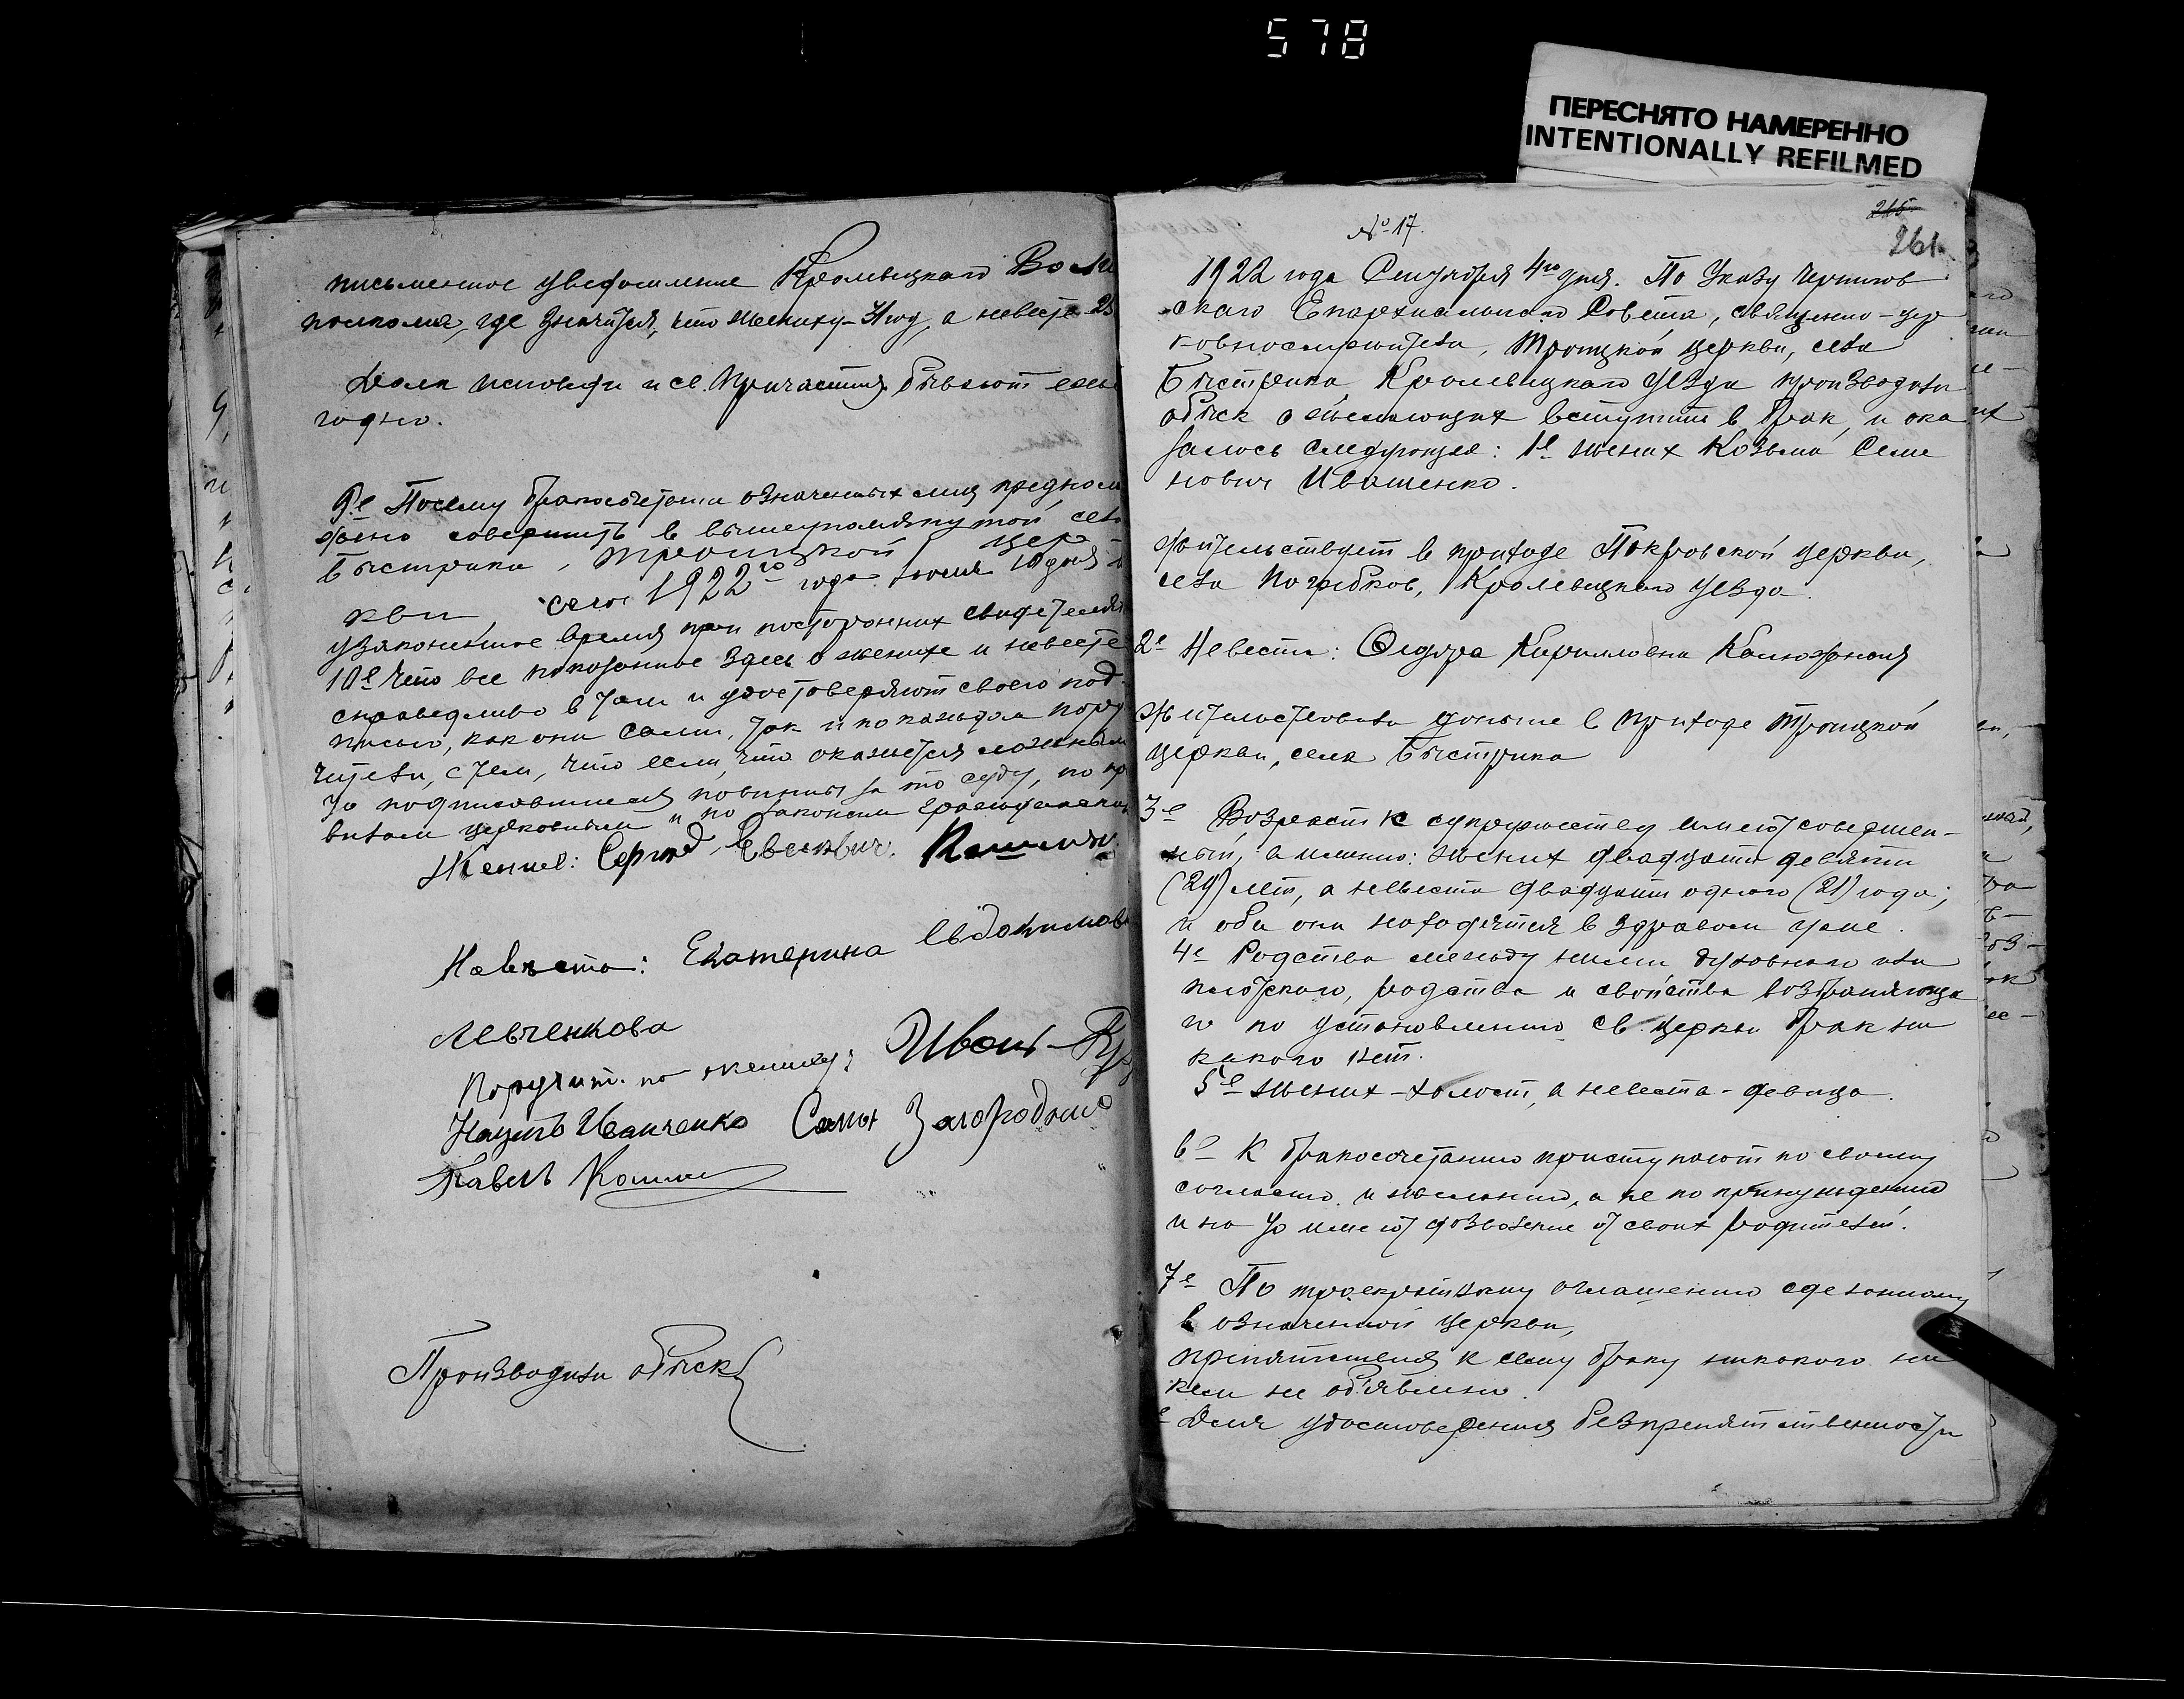 578
ПЕРЕСНЯТО НАМЕРЕННО
INTENTIONALLY REFILMED
письменное уведомление Кролевецкого Воли
полкома, где значится, что жениху - год, а невесте 2
Долг исповеди и св. Причастия бывают еже
годно.
9е Посему бракосочетание означенных лиц предполо
жено совершить в вышеупомянутой, села
Быстрика, Троицкой цер
кви, сего 1922го года июля 10 дня в
узаконенное время при посторонних свидетелях
10е Что все показанное здесь о женихе и невесте
справедливо в том и удостоверяют своею под-
писью, как они сами, так и по каждом пору
чители, с тем, что если, что окажется ложным
то подписавшиеся повинны за то суду, по пра
вилам церковным и по законам гражданским
Жених: Сергий Евсеевич
Невъста: Екатерина Евдокимов
Левченкова
Поручит. по жениху: Иван
Иванченко Загородний
Павелъ
Производили обыск
№ 17.
265
261
1922 года Сентября 4го дня. По Указу Чернигов
скаго Епархиальнаго Совета, священно-цер
ковнослужители, Троицкой церкви, села
Быстрика, Кролевецкаго уезда производили
обыск о желающих вступить в брак, и ока
залось следующее: 1е жених Козьма Семе
нович Иващенко.
жительствует в приходе Покровской церкви,
села Погребков, Кролевецкаго уезда.
2е Невеста: Федора Кирилловна Калюжная
жительствовала доныне в приходе Троицкой
церкви, села Быстрика
3е Возраст к супружеству имеют совершен-
ный, а именно: жених двадцати девяти
(29) лет, а невеста двадцати одного (21) года;
и оба они находятся в здравом уме.
4е Родства между ними духовнаго или
плотскаго, родства и свойства возбраняюща
го по установлению св. церкви брак ни
какого нет.
5е жених - холост, а невеста - девица.
6е К бракосочетанию приступают по своему
согласию и желанию, а не по принуждению
и на то имеют дозволение от своих родителей.
7е По троекратному оглашению сделанному
в означенной церкви,
препятствия к сему браку никакого ни
кем не объявлено.
е Для удостоверения безпрепятственности